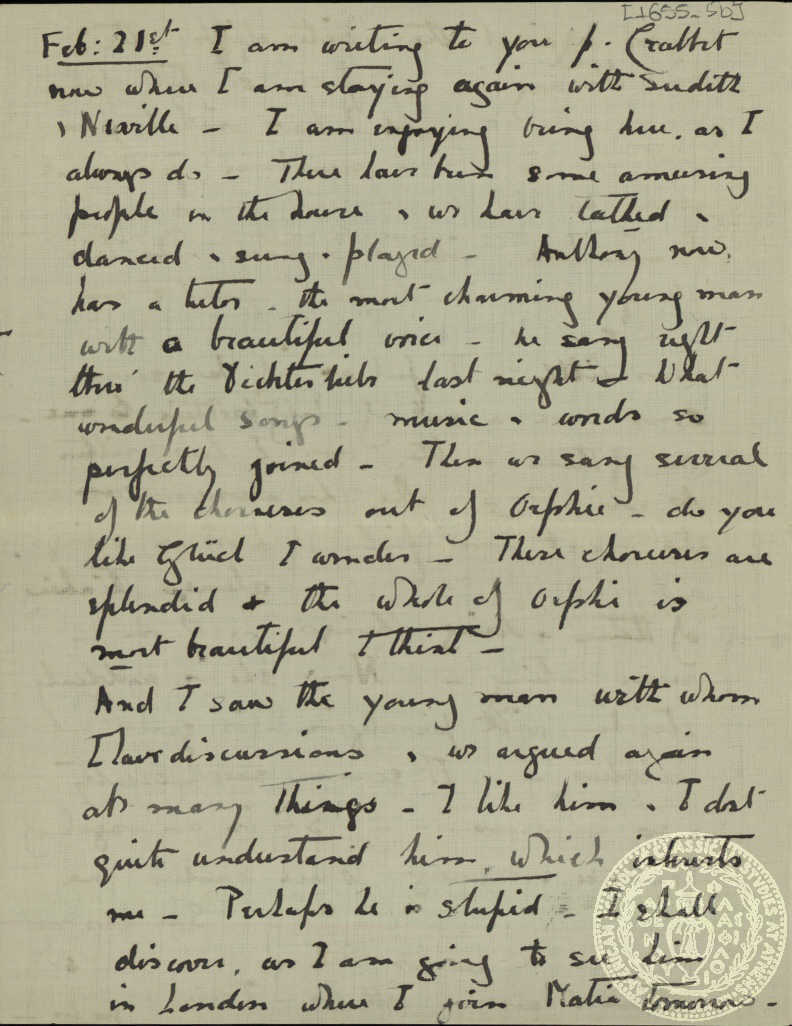 [1655-5b]
Feb: 21st I am writing to you fr. Crabbet
now where I am staying again with Judith
& Neville - I am enjoying being here, as I
always do - There have been some amusing
people in the house & we have talked &
danced & sung & played - Anthony now
has a tutor - the most charming young man
with a beautiful voice - he sang right
thro' the Dichterliebe last night - What
wonderful songs - music & words so
perfectly joined - Then we sang several
of the choruses out of Orphée - do you
like Glück I wonder - These choruses are
splendid & the whole of Orphée is
most beautiful I think -
And I saw the young man with whom
I have discussions & we argued again
abt many things - I like him & I don't
quite understand him, which interests
me - Perhaps he is stupid - I shall
discover, as I am going to see him
in London where I join Matie tomorrow -
CLASSICAL STUDIES AT ATHENS